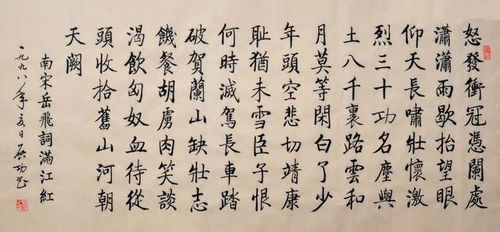 怒發衝冠憑闌處
瀟瀟雨歇抬望眼
仰天長嘯壯懷激
烈三十功名塵與
土八千裏路雲和
月莫等閑白了少
年頭空悲切靖康
恥猶未雪臣子恨
何時滅駕長車踏
破賀蘭山缺壯志
饑餐胡虜肉笑談
渴飲匈奴血待從
頭收拾舊山河朝
天闕
南宋岳飛詞滿江紅
一九九八年日啓功書